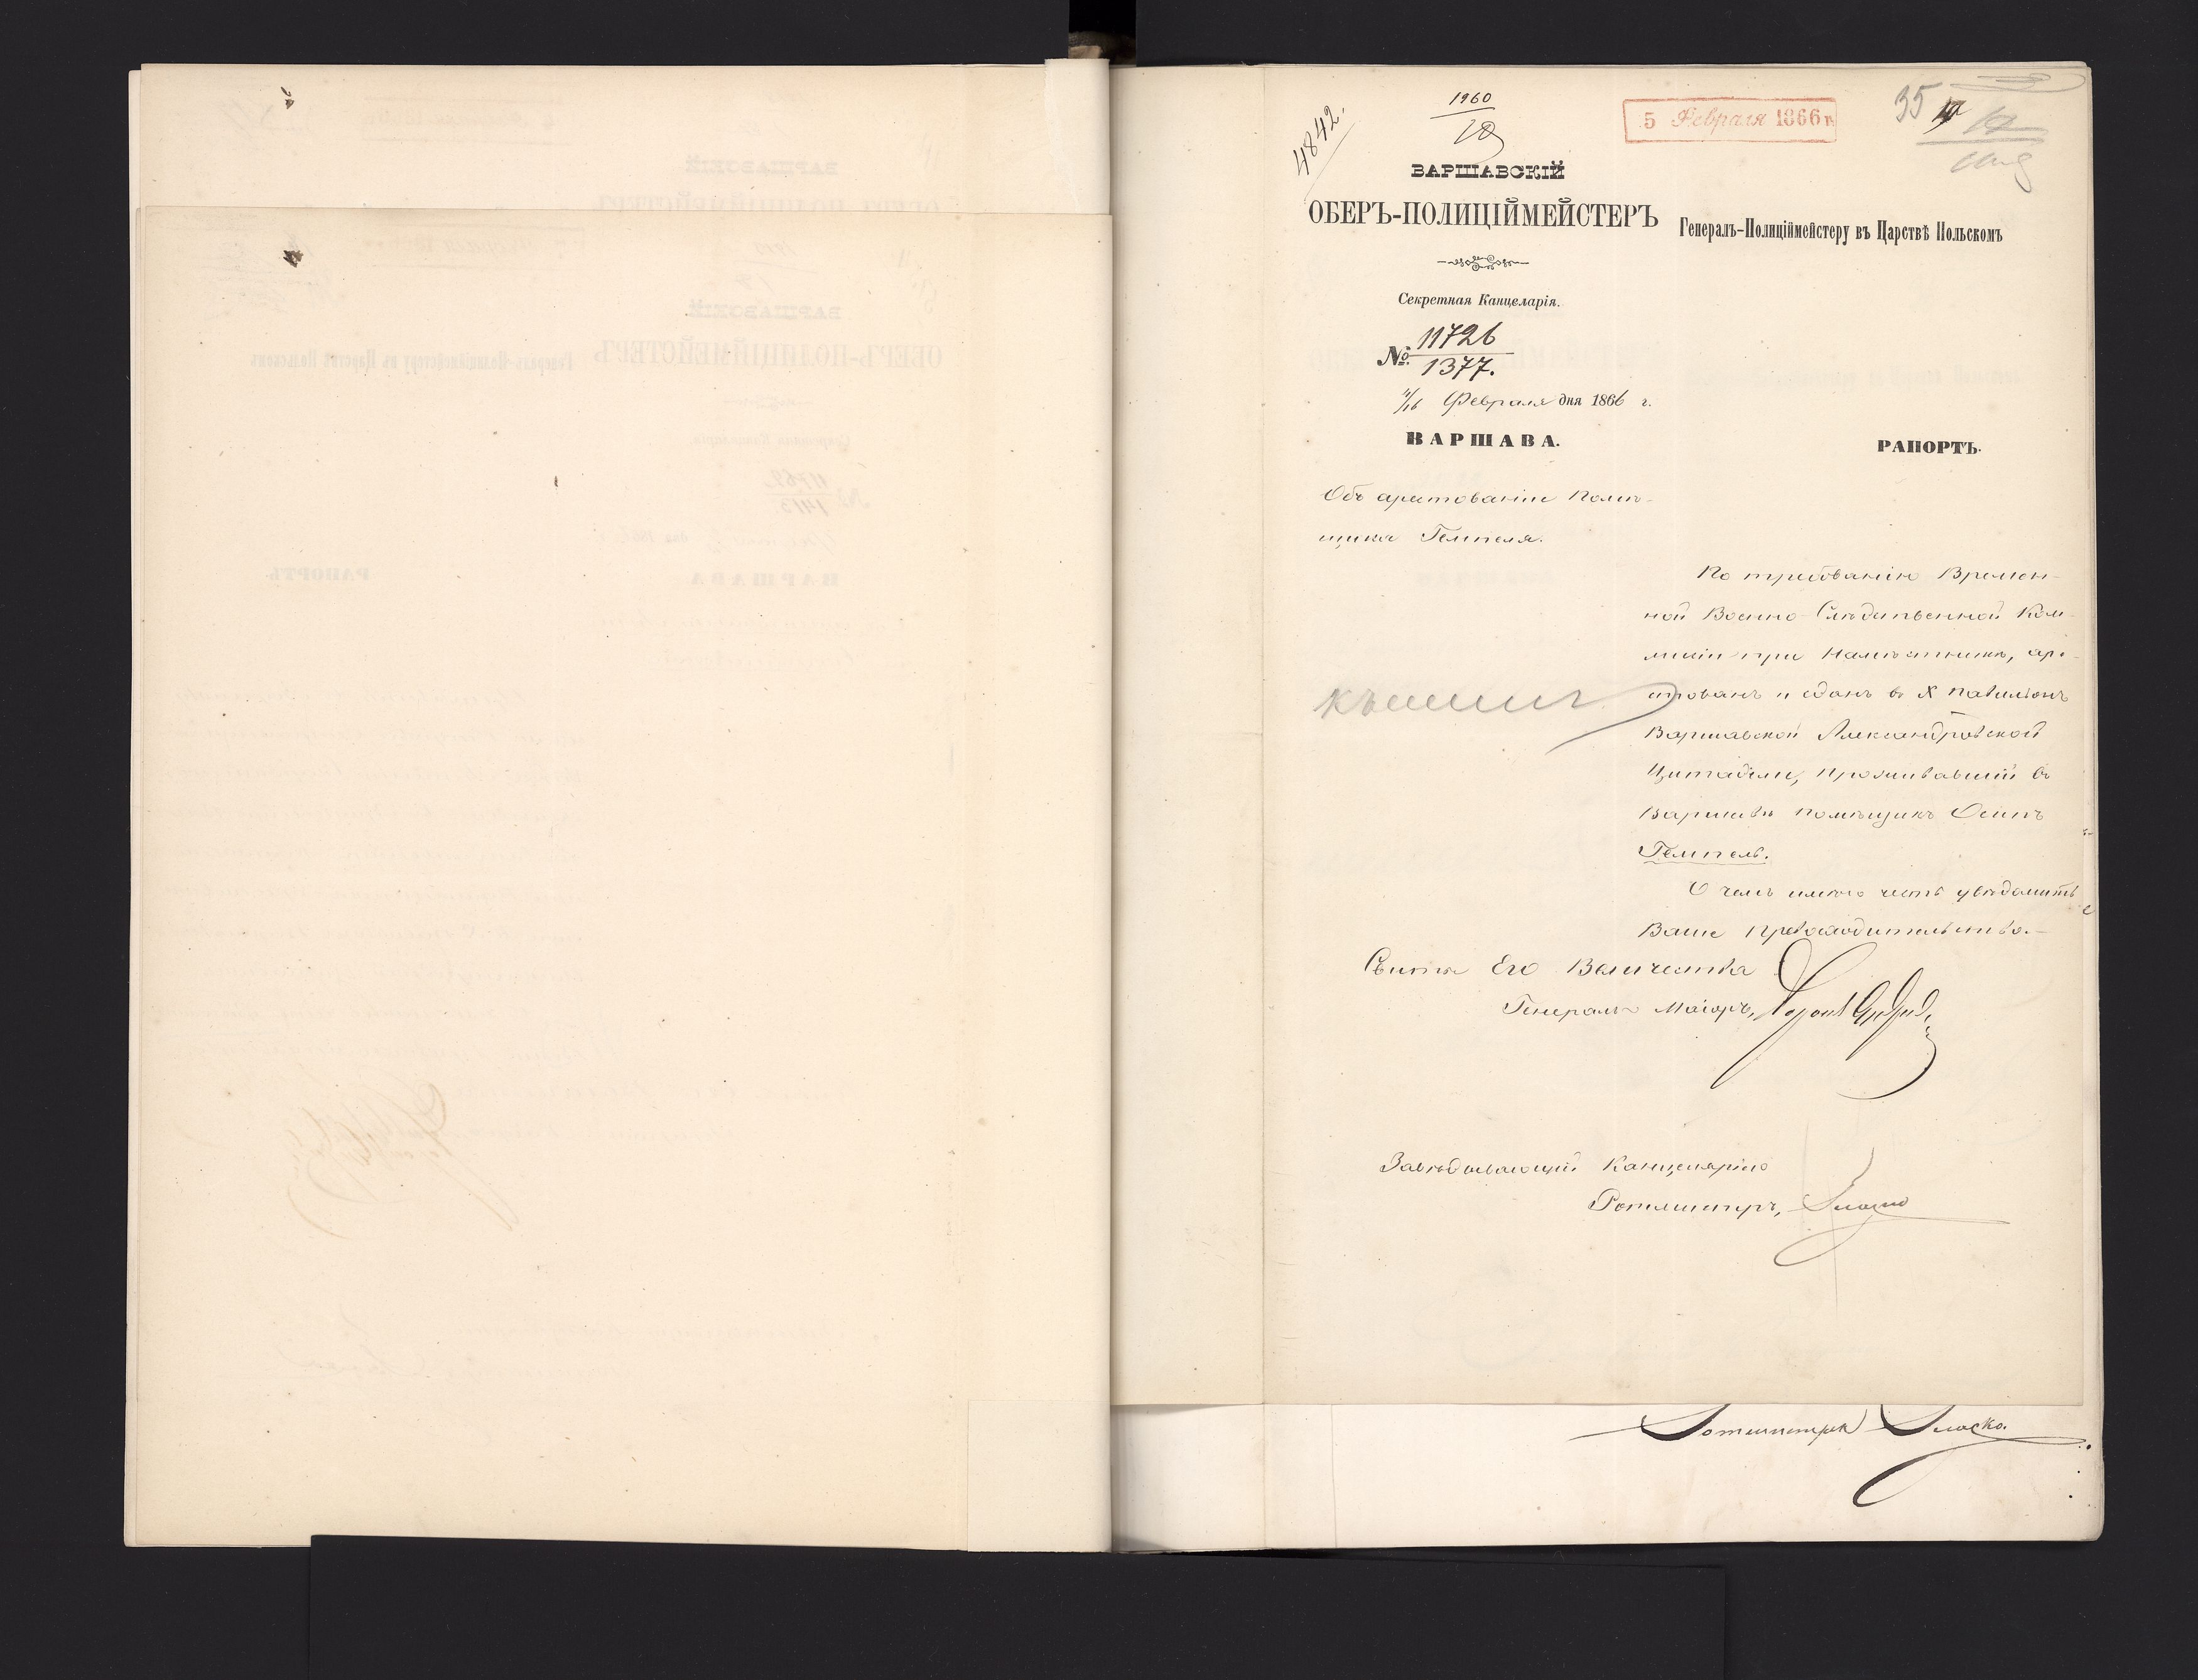 4842.
1960
10
5 Февраля 1866 г.
35
ВАРШАВСКІЙ
ОБЕРЪ-ПОЛИЦІЙМЕЙСТЕРЪ
Генералъ-Полиціймейстеру въ Царствѣ Польскомъ
Секретная Канцелярія.
№ 11726
1377.
4/16 Февраля дня 1866 г.
ВАРШАВА.
РАПОРТЪ.
Объ арестованіи Помѣ-
щика Гемпеля.
По требованію Времен-
ной Военно-Слѣдственной Ком-
мисіи при Намѣстникѣ, аре-
стованъ и сданъ въ X павильонъ
Варшавской Александровской
Цитадели, проживавшій въ
Варшавѣ помѣщикъ Осипъ
Гемпель.
О чемъ имѣю честь увѣдомить
Ваше Превосходительство.—
Свиты Его Величества
Генералъ Маіоръ, Баронъ
Завѣдывающій Канцеляріею
Ротмистръ,
Ротмистръ